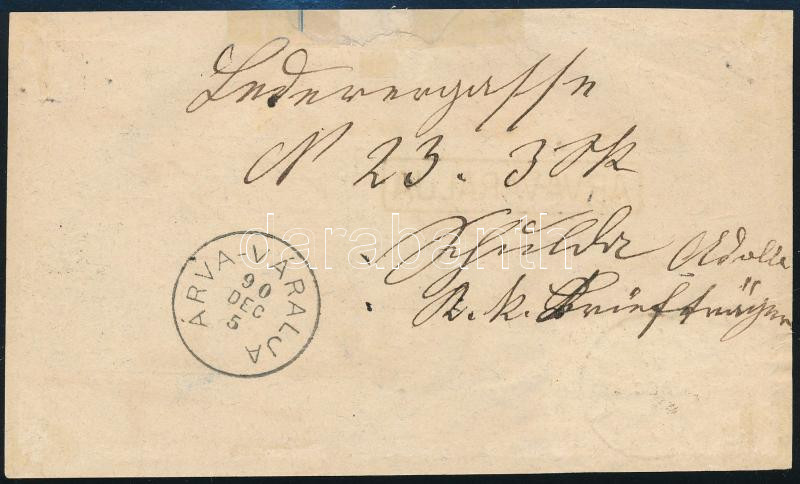 Lederergasse
N 23. 3 Stk
Schilder Adolf
K. k. Briefträger
ÁRVA-VÁRALJA
90
DEC
5
darabanth